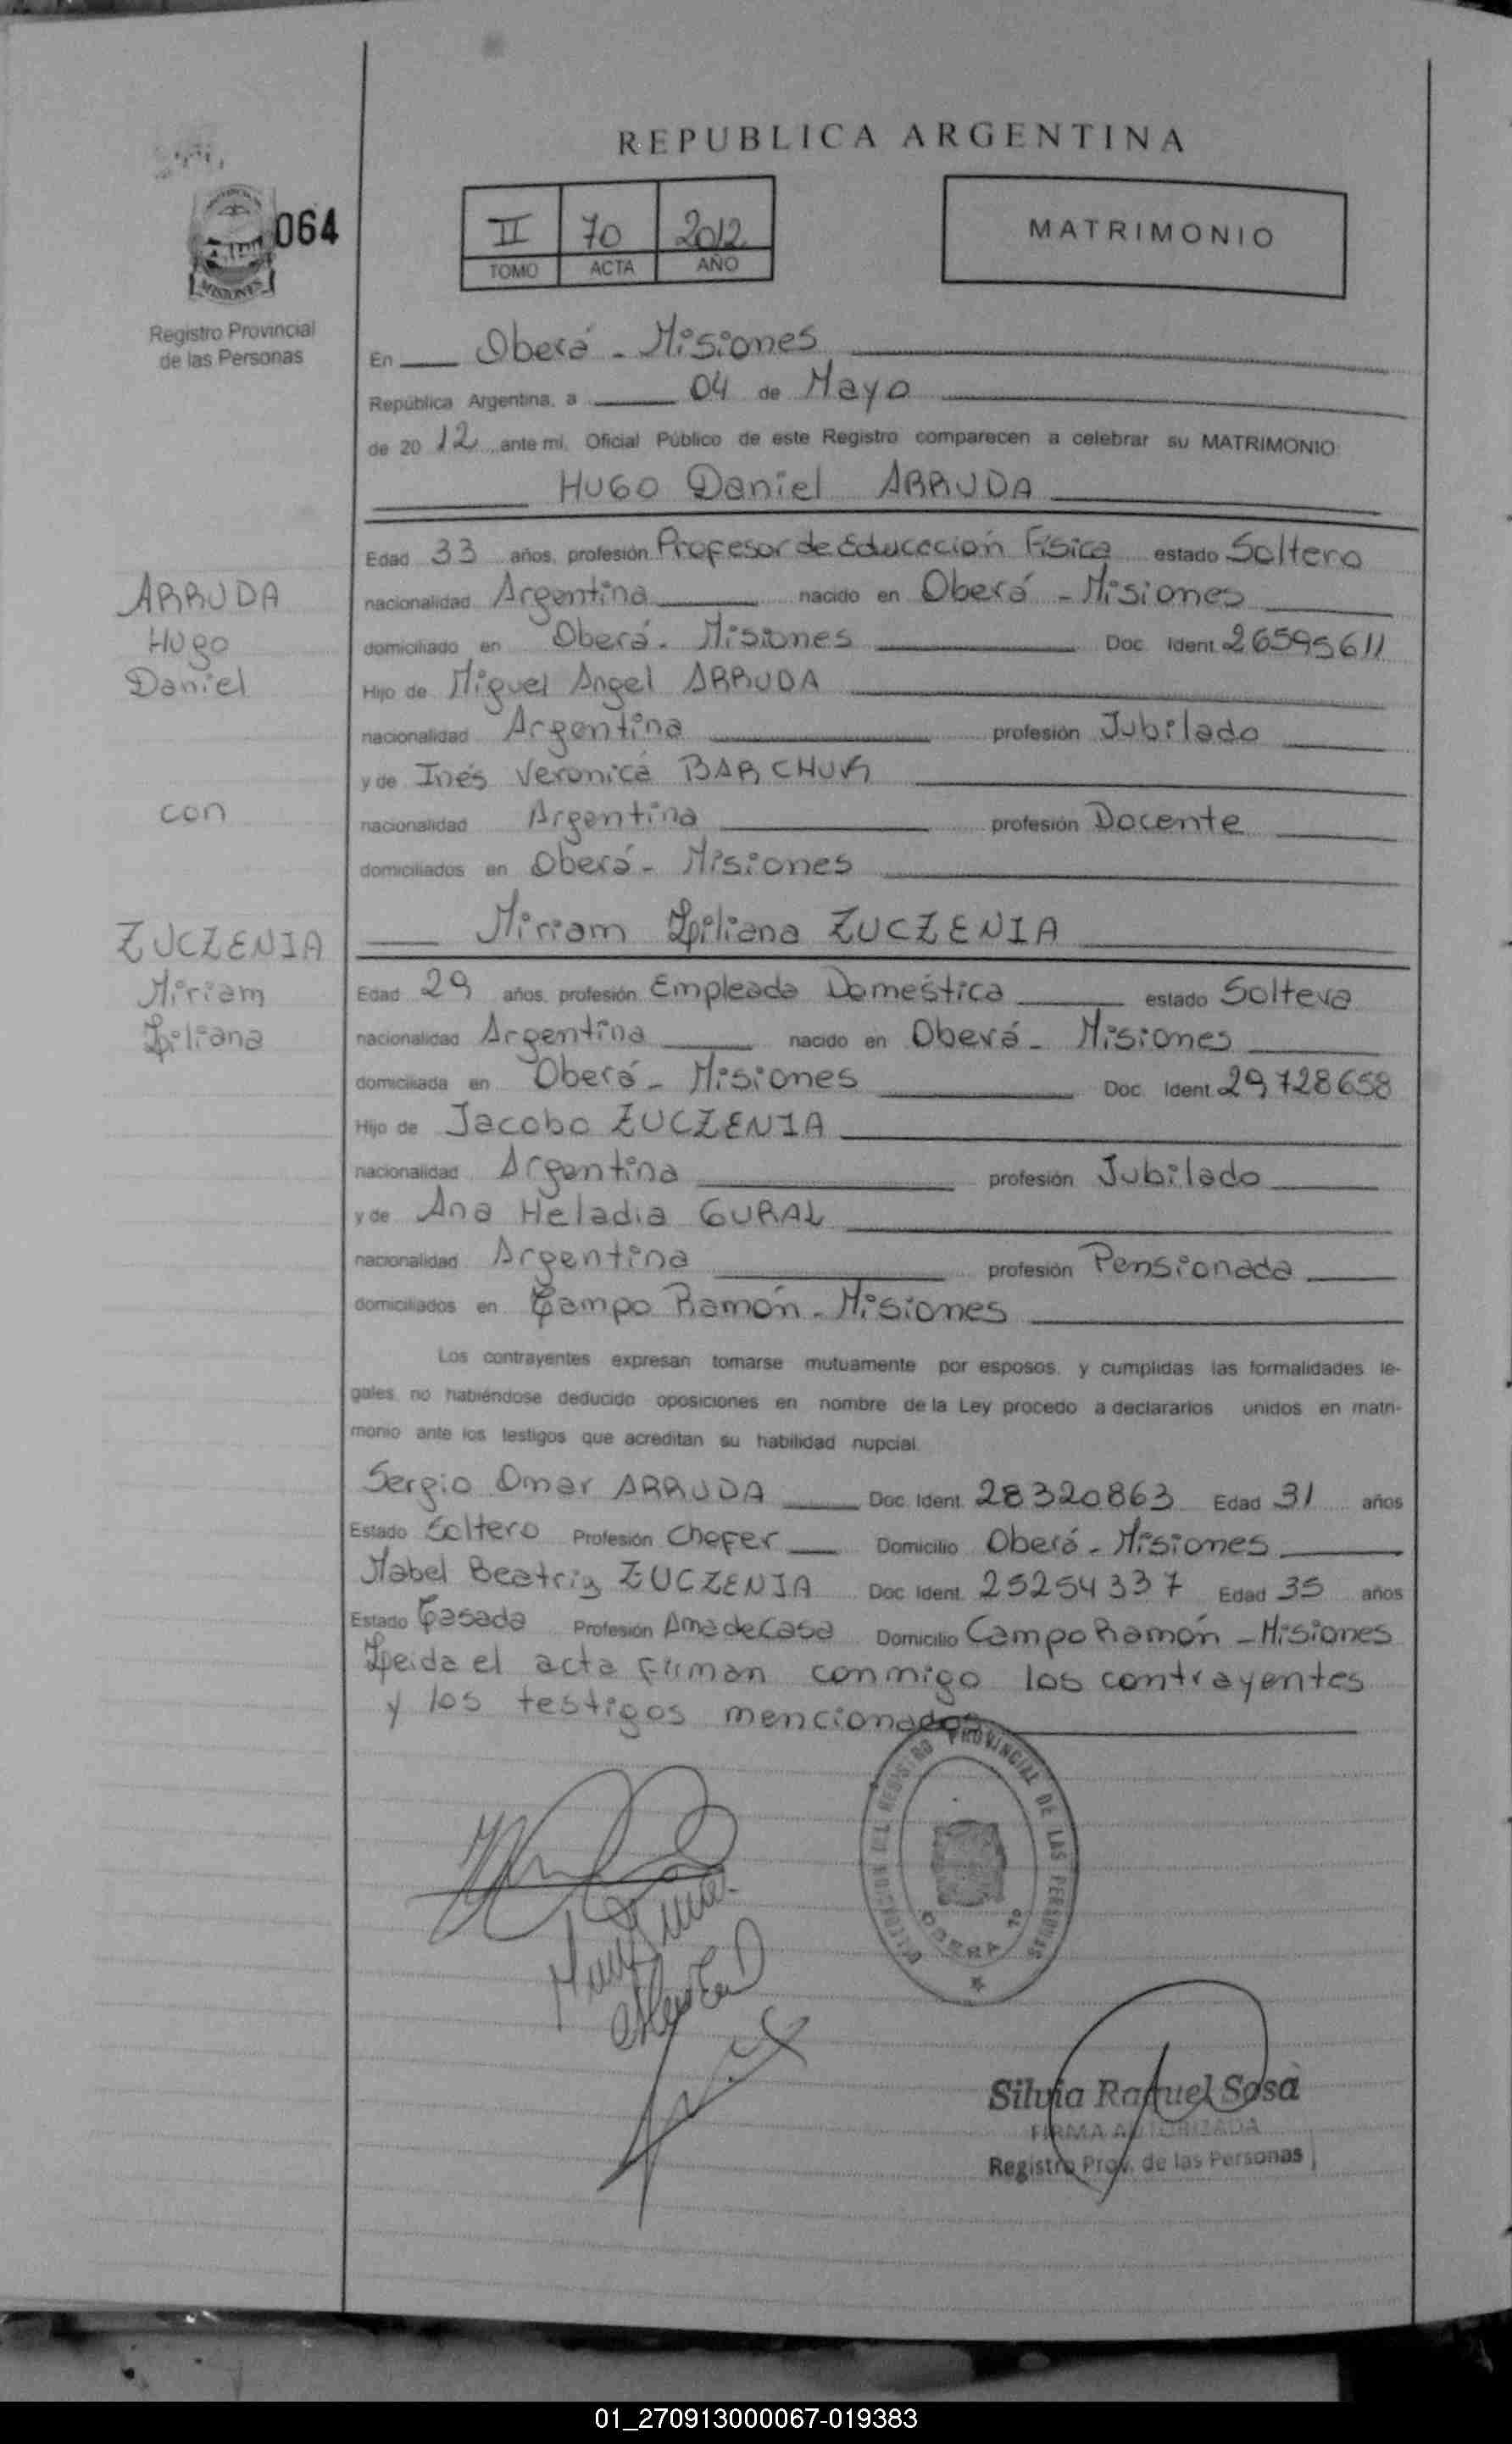 REPUBLICA ARGENTINA
064
MISIONES
Registro Provincial
de las Personas
II 70 2012
TOMO ACTA AÑO
MATRIMONIO
En Oberá - Misiones
República Argentina, a 04 de Mayo
de 20 12 ante mi, Oficial Público de este Registro comparecen a celebrar su MATRIMONIO
HUGO Daniel ARRUDA
Edad 33 años, profesión Profesor de Educación Física estado Soltero
nacionalidad Argentina nacido en Oberá - Misiones
domiciliado en Oberá - Misiones Doc. Ident. 26595611
Hijo de Miguel Angel ARRUDA
nacionalidad Argentina profesión Jubilado
y de Inés Veronica BARCHUK
nacionalidad Argentina profesión Docente
domiciliados en Oberá - Misiones
ARRUDA
Hugo
Daniel
con
ZUCZENIA
Miriam
Liliana
Miriam Liliana ZUCZENIA
Edad 29 años, profesión Empleada Doméstica estado Soltera
nacionalidad Argentina nacido en Oberá - Misiones
domiciliada en Oberá - Misiones Doc. Ident. 29728658
Hijo de Jacobo ZUCZENIA
nacionalidad Argentina profesión Jubilado
y de Ana Heladia GURAL
nacionalidad Argentina profesión Pensionada
domiciliados en Campo Ramón - Misiones
Los contrayentes expresan tomarse mutuamente por esposos, y cumplidas las formalidades le-
gales, no habiéndose deducido oposiciones en nombre de la Ley procedo a declararlos unidos en matri-
monio ante los testigos que acreditan su habilidad nupcial.
Sergio Omar ARRUDA Doc. Ident. 28320863 Edad 31 años
Estado Soltero Profesión Chofer Domicilio Oberá - Misiones
Mabel Beatriz ZUCZENIA Doc. Ident. 25254337 Edad 35 años
Estado Casada Profesión Ama de Casa Domicilio Campo Ramón - Misiones
Leida el acta firman conmigo los contrayentes
y los testigos mencionados
REGISTRO PROVINCIAL DE LAS PERSONAS
OBERA
Silvia Raquel Sosa
FIRMA AUTORIZADA
Registro Prov. de las Personas
01_270913000067-019383